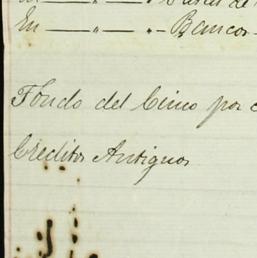 En — " — " - Bancos -
Fondo del Cinco por c
Creditos Antiguos